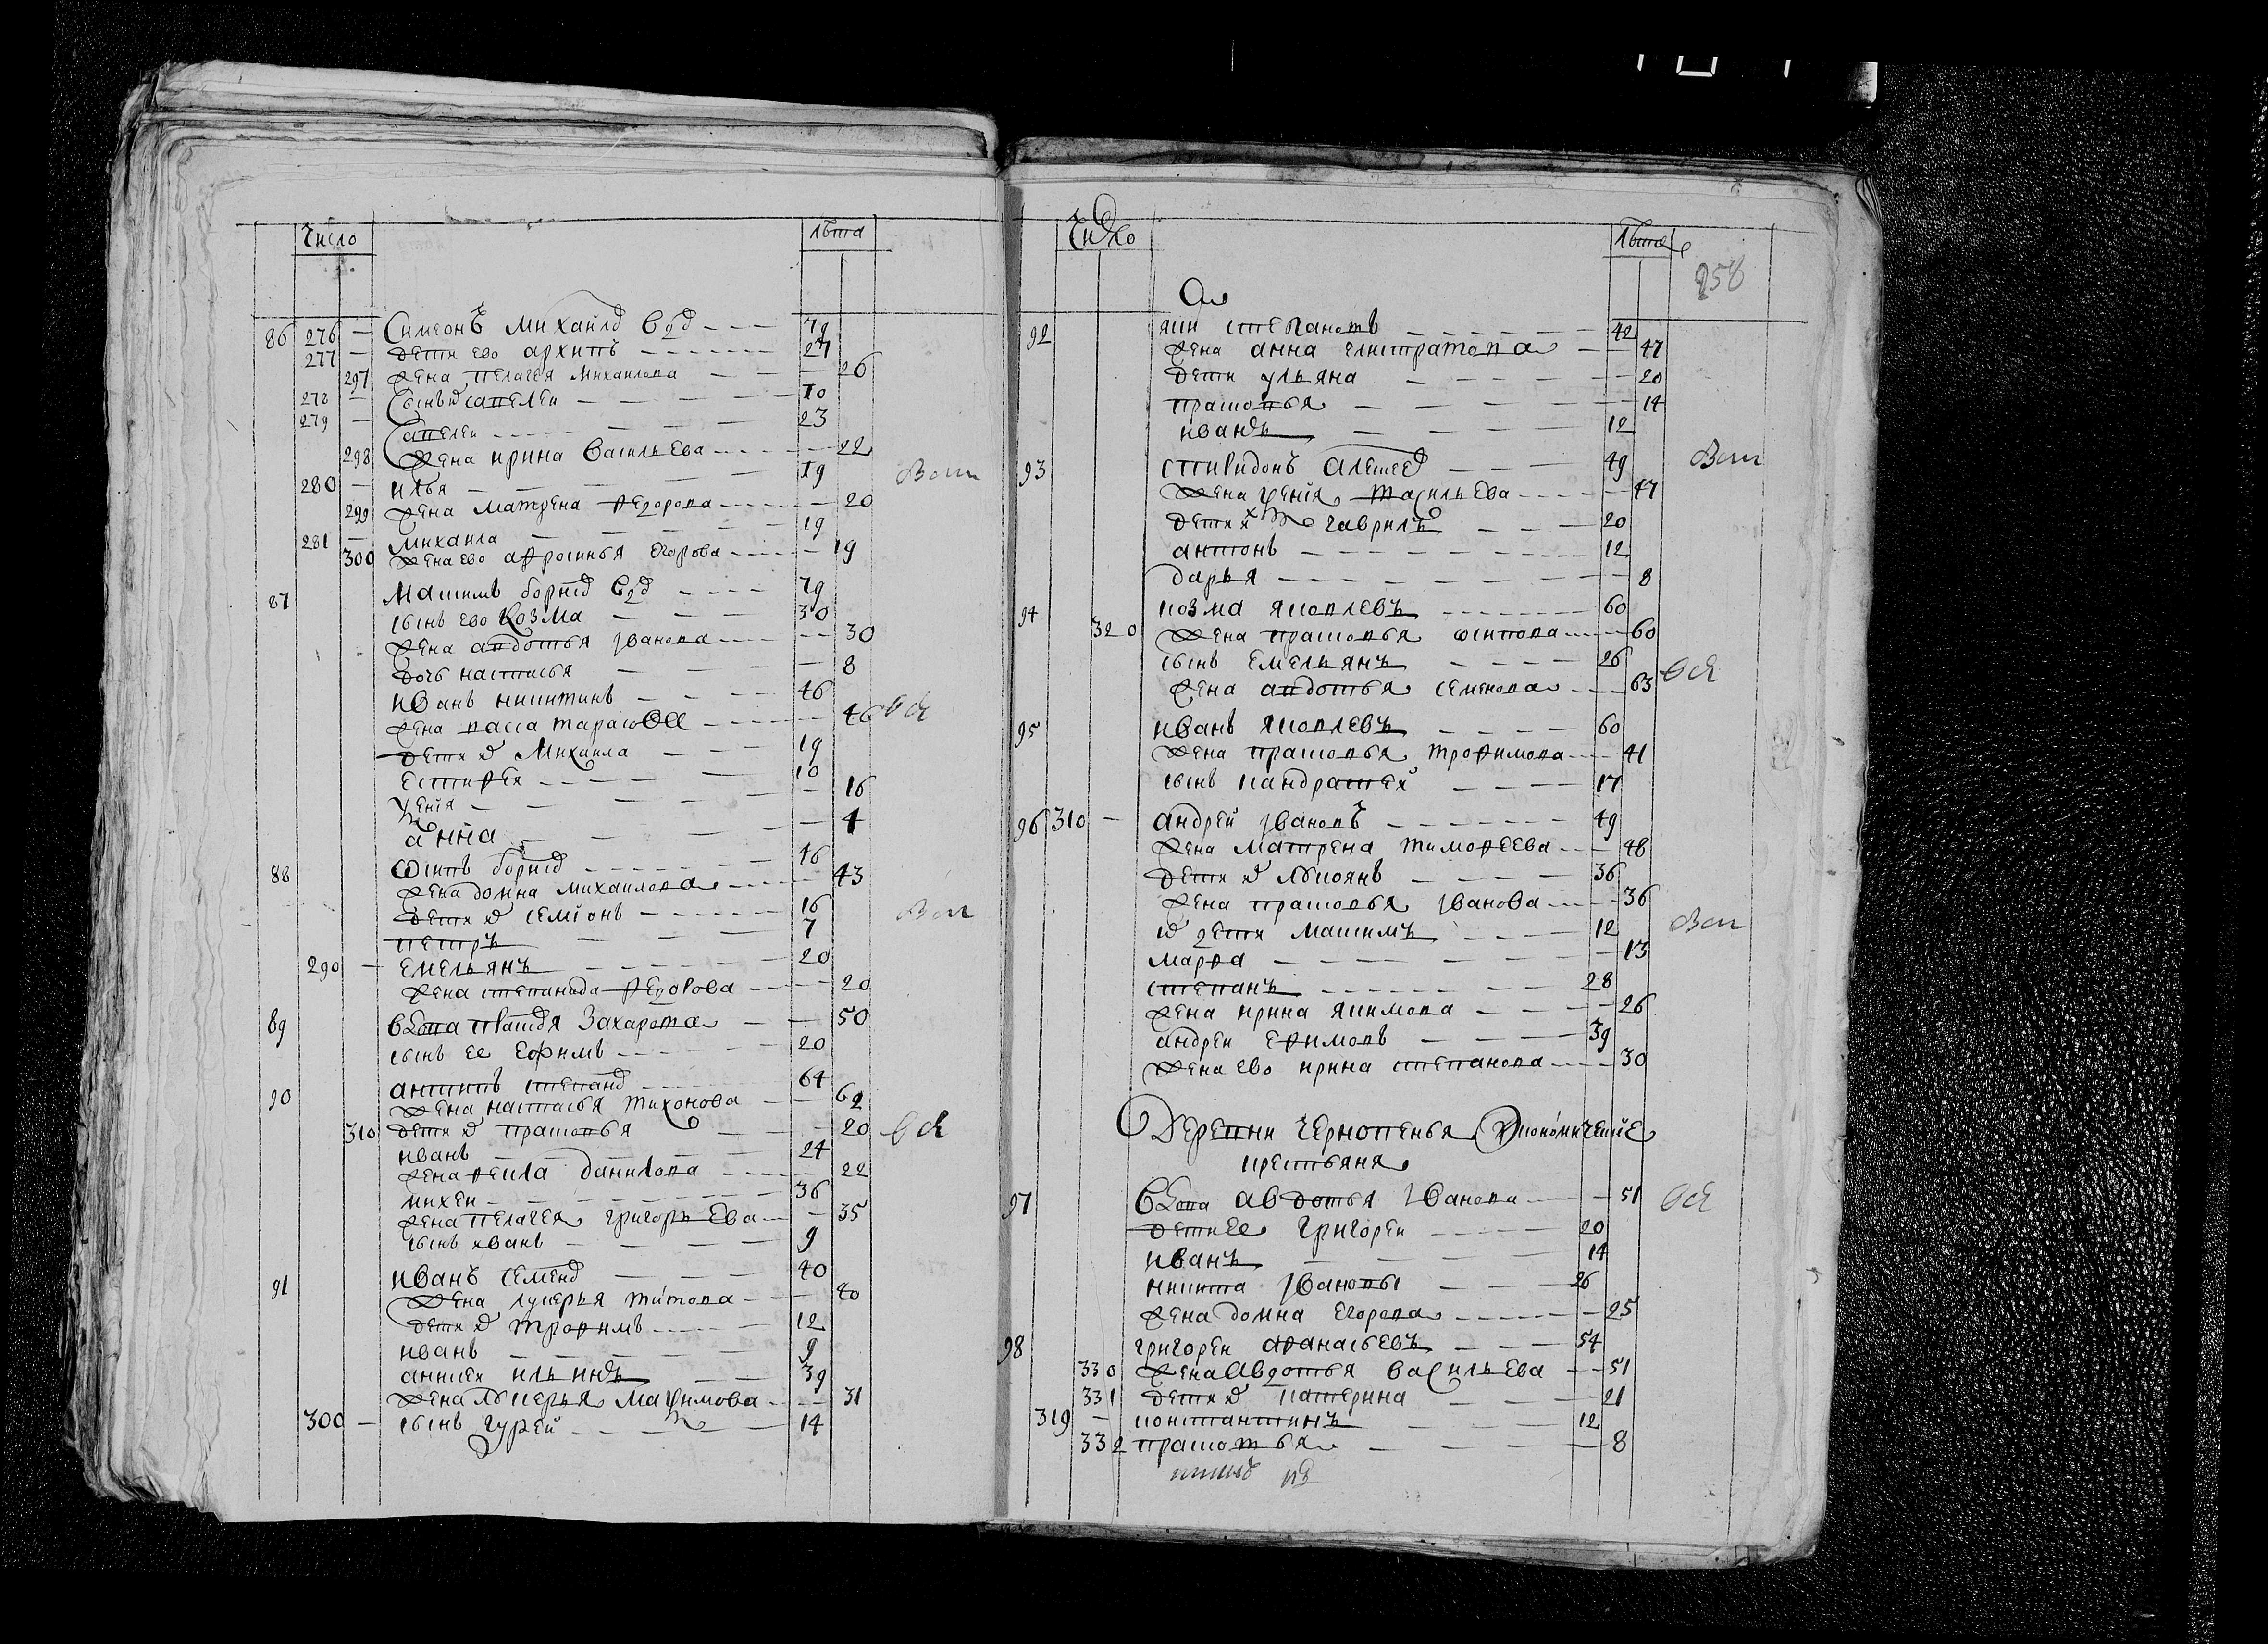 Число лѣта
86 276 — Симеонъ михаилов вдов — 79
277 — дети ево архипъ — 27
297 жена пелагея михаилова — 26
278 — Сынъ савелеи — 10
279 — Савелеи — 23
298 жена ирина васильева — 22
280 — илья — 19
299 жена матрена федорова — 20
281 — михаила — 19
300 жена ево афросинья егорова — 19
87 максимъ борисов вдов — 79
сынъ ево козма — 30
жена авдотья iванова — 30
дочь настасья — 8
иванъ никитинъ — 46
жена васса тарасова — 46
дети их михаила — 19
естифеи — 10
ѯения — 16
анна — 4
88 ѡсипъ борисов — 46
жена домна михаилова — 43
дети их семионъ — 16
петръ — 7
290 — емельянъ — 20
жена степанида федорова — 20
89 вдова праскѡвья захарова — 50
сынъ ее ефимъ — 20
90 антипъ степанов — 64
жена настасья тихонова — 62
310 дети их прасковья — 20
иванъ — 24
жена фекла данилова — 22
михеи — 36
жена пелагея григорьева — 35
сынъ иванъ — 9
91 иванъ семенов — 40
жена лукерья титова — 40
дети их трофимъ — 12
иванъ — 9
аникеи ильинъ — 39
жена лукерья маѯимова — 31
300 — сынъ гурей — 14
Число Лѣта
258
92 яки степановъ — 42
жена анна елистратова — 47
дети ульяна — 20
прасковья — 14
иванъ — 12
93 спиридонъ алексеев — 49
жена ѯения васильева — 47
дети их гаврилъ — 20
антонъ — 12
дарья — 8
94 козма яковлевъ — 60
320 жена прасковья ѡсипова — 60
сынъ емельянъ — 26
жена авдотья семенова — 63
95 иванъ яковлевъ — 60
жена прасковья трофимова — 41
сынъ кандратеи — 17
96 310 — андрей iвановъ — 49
жена матрена тимофеева — 48
дети их лукоянъ — 36
жена прасковья iванова — 36
их дети максимъ — 12
марфа — 13
степанъ — 28
жена ирина якимова — 26
андреи ефимовъ — 39
жена ево ирина степанова — 30
Деревни чернопенья экономические
крестьяня
97 вдова авдотья iванова — 51
дети ее григореи — 20
иванъ — 14
никита iвановъ — 26
жена домна егорова — 25
98 григореи афанасьевъ — 54
330 жена авдотья васильева — 51
331 дети их катерина — 21
319 — константинъ — 12
332 прасковья — 8